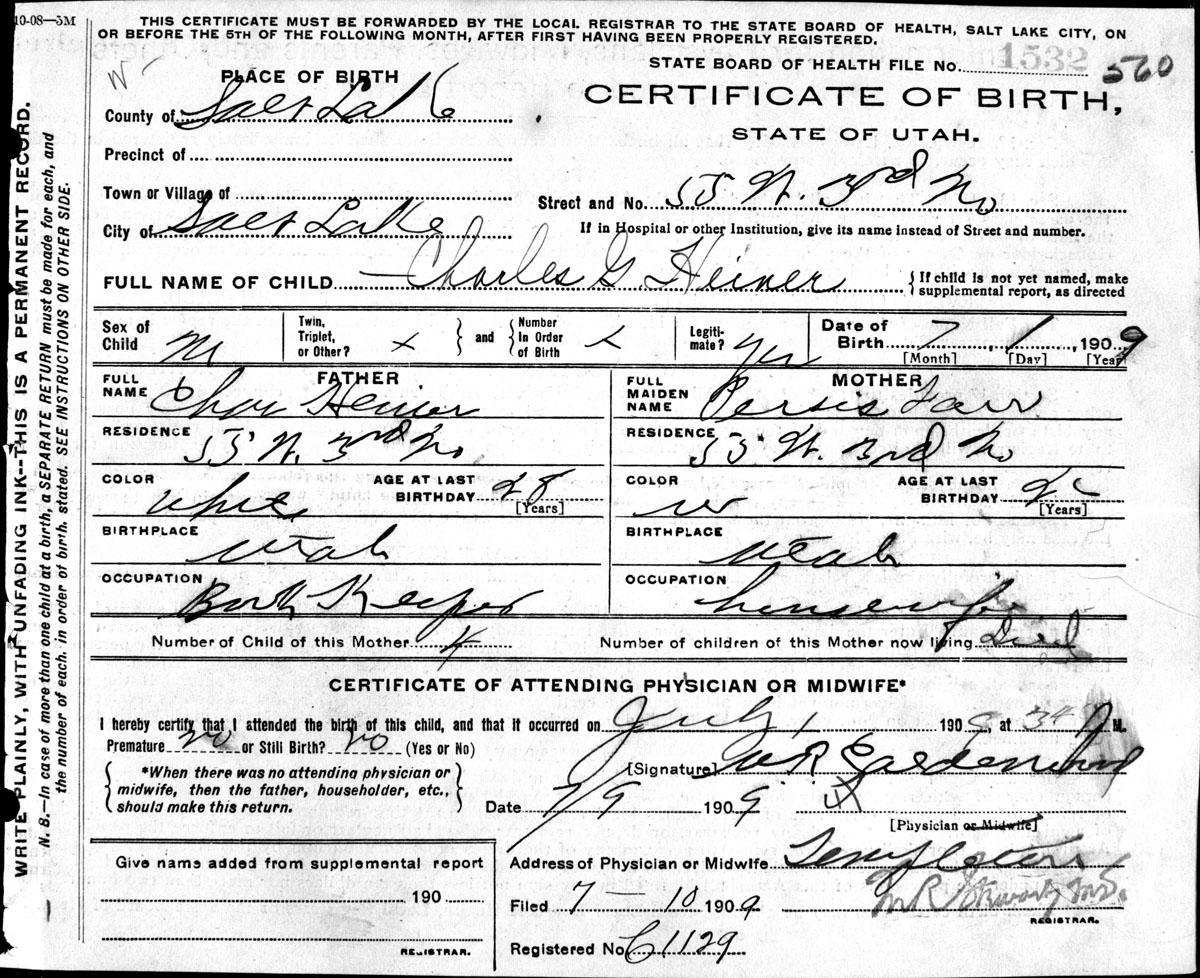 10-08—5M
THIS CERTIFICATE MUST BE FORWARDED BY THE LOCAL REGISTRAR TO THE STATE BOARD OF HEALTH, SALT LAKE CITY, ON
OR BEFORE THE 5TH OF THE FOLLOWING MONTH, AFTER FIRST HAVING BEEN PROPERLY REGISTERED.
STATE BOARD OF HEALTH FILE No. 1532 560
W
PLACE OF BIRTH
CERTIFICATE OF BIRTH,
STATE OF UTAH.
County of Salt Lake
Precinct of
Town or Village of
Street and No. 55 W. 3rd No
City of Salt Lake
If in Hospital or other Institution, give its name instead of Street and number.
FULL NAME OF CHILD Charles G. Heiner
{If child is not yet named, make supplemental report, as directed
Sex of Child M
Twin, Triplet, or Other? x } and { Number In Order of Birth x
Legitimate? yes
Date of Birth 7, 1, 1909
[Month] [Day] [Year]
FATHER
FULL NAME Chas Heiner
RESIDENCE 55 W. 3rd No
COLOR white AGE AT LAST BIRTHDAY 28 [Years]
BIRTHPLACE Utah
OCCUPATION Book Keeper
MOTHER
FULL MAIDEN NAME Persis Farr
RESIDENCE 55 W. 3rd No
COLOR W AGE AT LAST BIRTHDAY [Years]
BIRTHPLACE Utah
OCCUPATION housewife
Number of Child of this Mother 4
Number of children of this Mother now living
CERTIFICATE OF ATTENDING PHYSICIAN OR MIDWIFE*
I hereby certify that I attended the birth of this child, and that it occurred on July 1 1909, at M.
Premature no or Still Birth? no (Yes or No)
{ *When there was no attending physician or midwife, then the father, householder, etc., should make this return. }
[Signature]
Date 7/9 1909
[Physician or Midwife]
Give name added from supplemental report
190
REGISTRAR.
Address of Physician or Midwife Templeton
Filed 7 — 10 1909
REGISTRAR.
Registered No. C 1129
WRITE PLAINLY, WITH UNFADING INK--THIS IS A PERMANENT RECORD.
N. B.—In case of more than one child at a birth, a SEPARATE RETURN must be made for each, and
the number of each, in order of birth, stated. SEE INSTRUCTIONS ON OTHER SIDE.